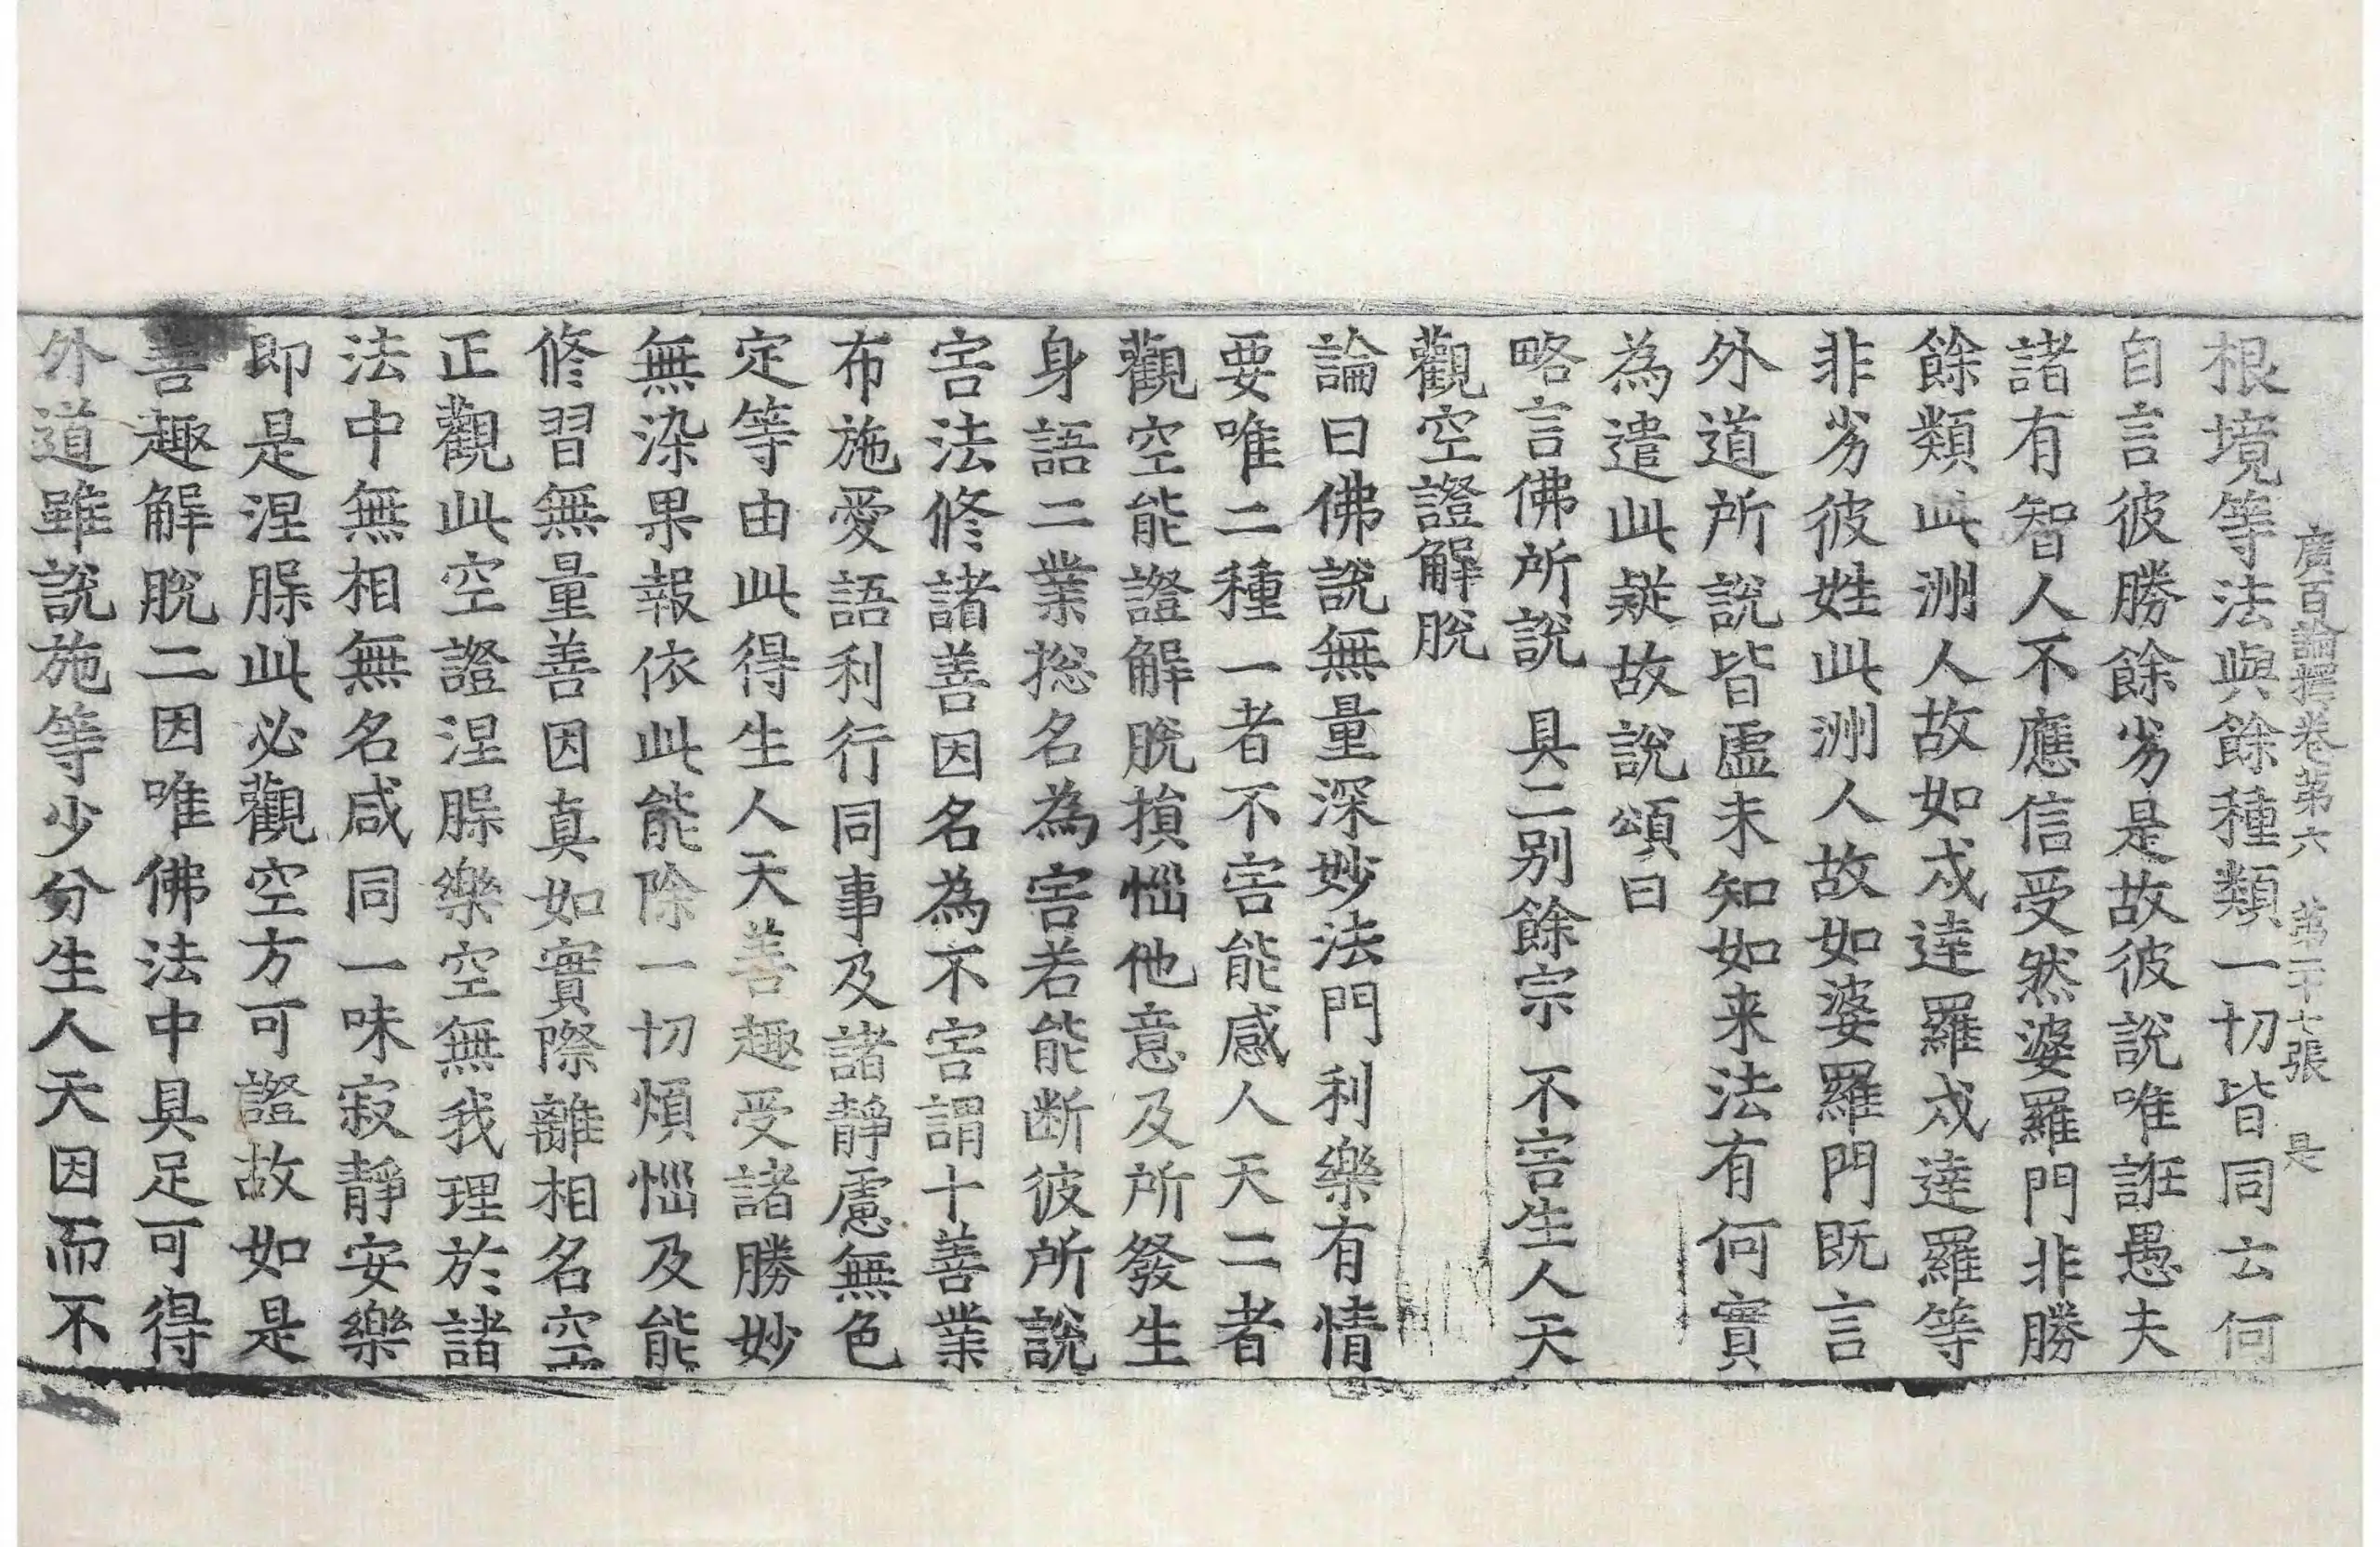 廣百論釋卷第六 第二十七張 是
根境等法與餘種類一切皆同云何
自言彼勝餘劣是故彼說唯誑愚夫
諸有智人不應信受然婆羅門非勝
餘類此洲人故如戍達羅戍達羅等
非劣彼姓此洲人故如婆羅門既言
外道所說皆虛未知如来法有何實
為遣此疑故說頌曰
略言佛所說 具二別餘宗 不害生人天
觀空證解脫
論曰佛說無量深妙法門利樂有情
要唯二種一者不害能感人天二者
觀空能證解脫損惱他意及所發生
身語二業揔名為害若能断彼所說
害法修諸善因名為不害謂十善業
布施愛語利行同事及諸靜慮無色
定等由此得生人天善趣受諸勝妙
無染果報依此能除一切煩惱及能
修習無量善因真如實際離相名空
正觀此空證涅脲樂空無我理於諸
法中無相無名咸同一味寂靜安樂
即是涅脲此必觀空方可證故如是
善趣解脫二因唯佛法中具足可得
外道雖說施等少分生人天因而不